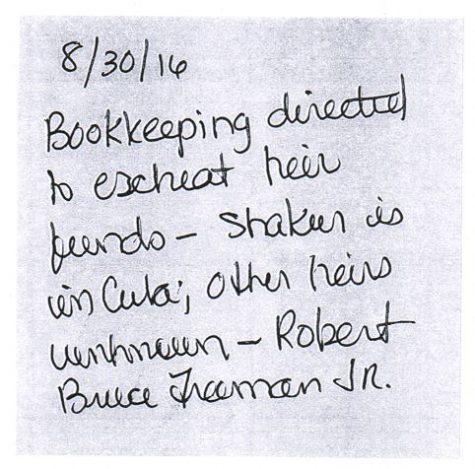 8/30/16
Bookkeeping directed
to escheat heir
funds - Shakur is
in Cuba; other heirs
unknown - Robert
Bruce Freeman JR.